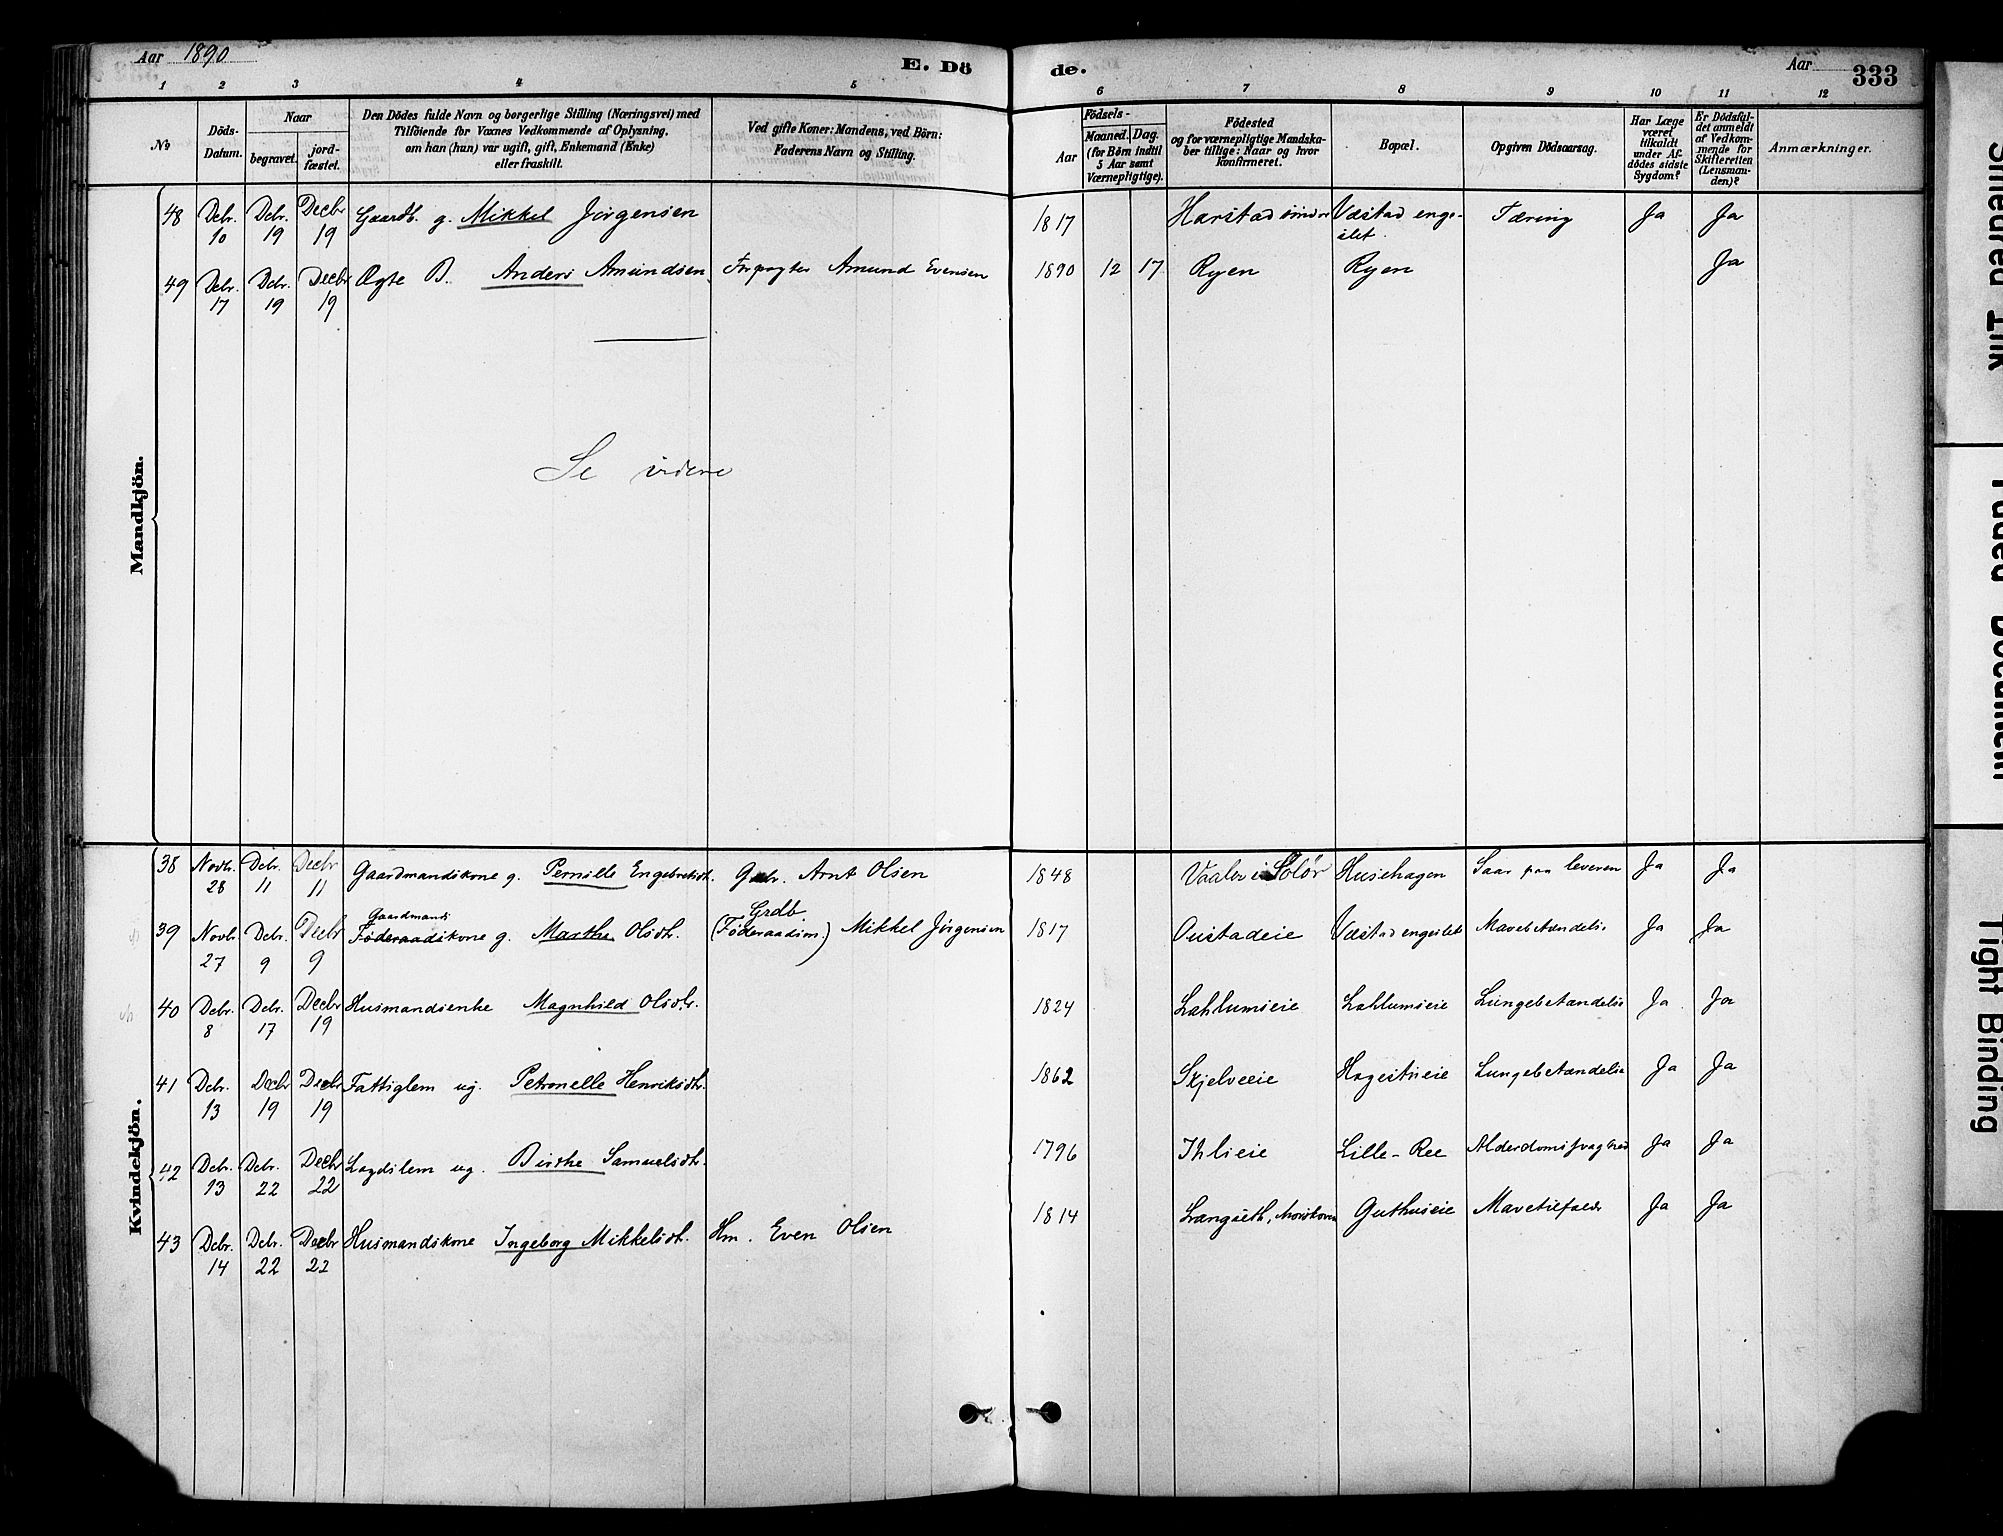 Aar 1890
E. Dö
de.
Aar
333
1 2 3 4 5 6 7 8 9 10 11 12
No
Döds-Datum.
Naar
begravet.
jord-fæstet.
Den Dödes fulde Navn og borgerlige Stilling (Næringsvei) med
Tilföiende for Voxnes Vedkommende af Oplysning,
om han (hun) var ugift, gift, Enkemand (Enke)
eller fraskilt.
Ved gifte Koner: Mandens, ved Börn:
Faderens Navn og Stilling.
Födsels-
Aar
Maaned. Dag.
(for Börn indtil
5 Aar samt
Værnepligtige).
Födested
og for værnepligtige Mandska-
ber tillige: Naar og hvor
konfirmeret.
Bopæl.
Opgiven Dödsaarsag.
Har Læge
været
tilkaldt
under Af-
dödes sidste
Sygdom?
Er Dödsfal-
det anmeldt
af Vedkom-
mende for
Skifteretten
(Lensman-
den)?
Anmærkninger.
Mandkjön.
48 Debr. 10 Debr. 19 Decbr 19 Gaardb. g. Mikkel Jørgensen 1817 Harstad søndre Væstad enge-slet. Tæring Ja Ja
49 Debr. 17 Debr. 19 Decbr 19 Ægte B. Anders Amundsen Forpagter Amund Evensen 1890 12 17 Ryen Ryen Ja
Se videre
Kvindekjön.
38 Novbr. 28 Debr. 11 Decbr 11 Gaardmandskone g. Pernille Engebretsdtr. Gbr. Arnt Olsen 1848 Vaaler i Solør Husehagen Saar paa leveren Ja Ja
39 Novbr. 27 Debr. 9 Decbr 9 Gaardmands Føderaadskone g. Marthe Olsdtr. Grdb. (Føderaadsm.) Mikkel Jørgensen 1817 Oustadeie Væstad engeslet Mavebetændelse Ja Ja
40 Debr. 8 Debr. 17 Decbr 19 Husmandsenke Magnhild Olsdtr. 1824 Lahlumseie Lahlumseie Lungebetændelse Ja Ja
41 Debr. 13 Decbr 19 Decbr 19 Fattiglem ug. Petronelle Henriksdtr. 1862 Skjelveeie Hagestueie Lungebetændelse Ja Ja
42 Debr. 13 Debr. 22 Decbr 22 Lægdslem ug. Birthe Samuelsdtr. 1796 Ihlseie Lille-Ree Alderdomssvaghed Ja Ja
43 Debr. 14 Debr. 22 Decbr 22 Husmandskone Ingeborg Mikkelsdtr. Hm. Even Olsen 1814 Langseth, Guthuseie Mavetilfælde Ja Ja
Smeared Ink
Faded Document
Tight Binding